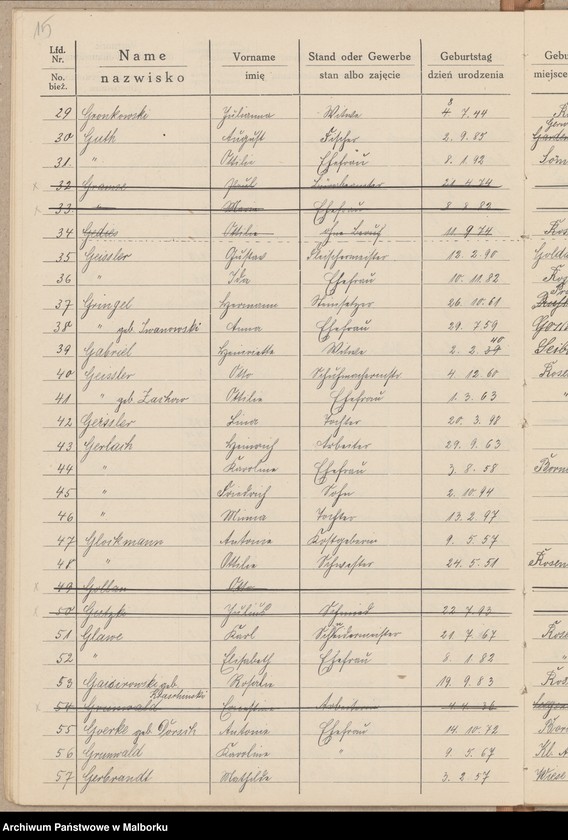 15
Lfd. Nr. Name Vorname Stand oder Gewerbe Geburtstag Gebu
No. bież. nazwisko imię stan albo zajęcie dzień urodzenia miejsce
29 Gronkowski Julianna Witwe 7. 44
30 Guth August Fischer 2. 9. 85
31 " Ottilie Ehefrau 8. 1. 92
32 Paul 21. 4. 74
33 " Marie Ehefrau 8. 8. 82
34 Ottilie ohne Beruf 11. 9. 74
35 Geissler Gustav Fleischermeister 12. 2. 90
36 " Ida Ehefrau 10. 11. 82
37 Gringel Hermann Steinsetzer 26. 10. 61
38 " geb. Iwanowski Anna Ehefrau 29. 7. 59
39 Gabriel Henriette Witwe 2. 2. 40
40 Geissler Otto Schuhmachermstr 4. 12. 60
41 " geb. Zachow Ottilie Ehefrau 1. 3. 63 "
42 Geissler Lina Tochter 20. 3. 98
43 Gerlach Heinrich Arbeiter 29. 9. 63
44 " Karoline Ehefrau 3. 8. 58
45 " Friedrich Sohn 2. 10. 94
46 " Minna Tochter 13. 2. 97
47 Glockmann Antonie 9. 5. 57
48 " Ottilie Schwester 24. 5. 51 Rosen
49 Gollan Otto
50 Julius Schmied 22. 7. 93
51 Glawe Karl Schneidermeister 21. 7. 67
52 " Elisabeth Ehefrau 8. 1. 82 "
53 geb. Rosalie 19. 9. 83
54 Grunwald Ernestine Arbeiterin 4. 4. 36
55 Goerke geb. Dorsch Antonie Ehefrau 14. 10. 72
56 Grunwald Karoline " 9. 5. 67 Kl.
57 Gerbrandt Mathilde 3. 2. 57 Wiese
Archiwum Państwowe w Malborku